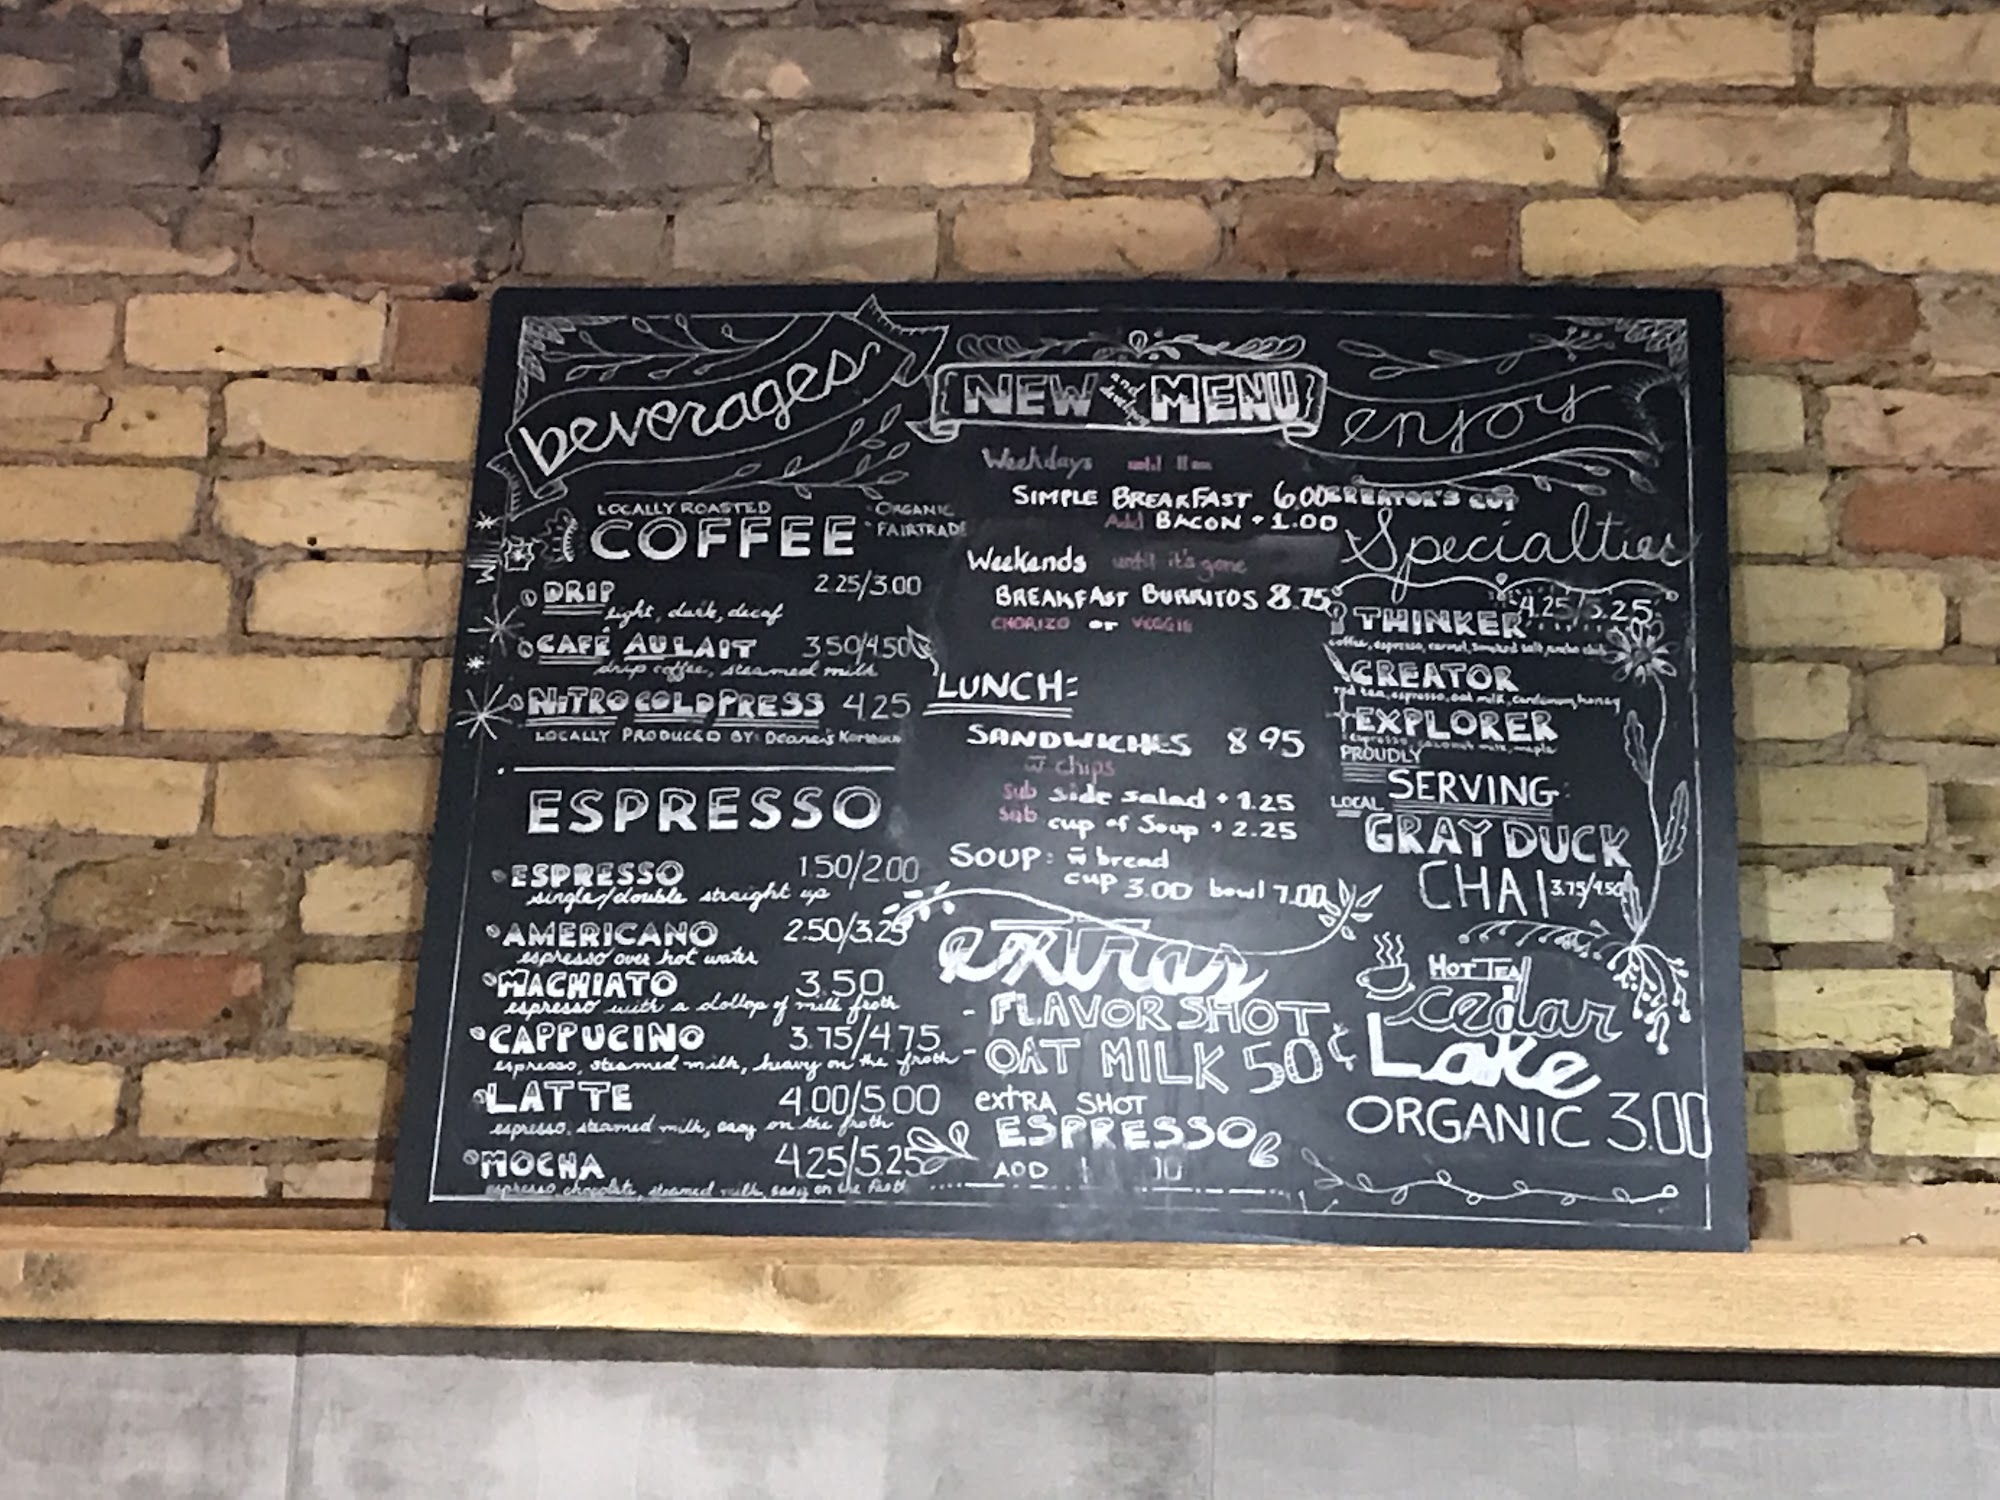 beverages
LOCALLY ROASTED
COFFEE
ORGANIC
FAIRTRADE
DRIP 2.25/3.00
light, dark, decaf
CAFÉ AU LAIT 3.50/4.50
drip coffee, steamed milk
NITRO COLD PRESS 4.25
LOCALLY PRODUCED BY: Deane's
ESPRESSO
ESPRESSO 1.50/2.00
single/double straight up
AMERICANO 2.50/3.25
espresso over hot water
MACHIATO 3.50
espresso with a dollop of milk froth
CAPPUCINO 3.75/4.75
espresso, steamed milk, heavy on the froth
LATTE 4.00/5.00
espresso, steamed milk, easy on the froth
MOCHA 4.25/5.25
espresso, chocolate, steamed milk, easy on the froth
NEW and MENU
Weekdays until 11am
SIMPLE BREAKFAST 6.00
Add BACON + 1.00
Weekends until it's gone
BREAKFAST BURRITOS 8.75
CHORIZO or VEGGIE
LUNCH:
SANDWICHES 8.95
w chips
sub side salad + 1.25
sub cup of Soup + 2.25
SOUP: w bread
cup 3.00 bowl 7.00
extras
- FLAVOR SHOT
- OAT MILK 50¢
extRA SHOT
ESPRESSO
ADD
enjoy
CREATOR'S CUP
Specialties
THINKER 4.25/5.25
coffee, espresso, caramel, smoked salt, ancho chili
CREATOR
red tea, espresso, oat milk, cardamom, honey
EXPLORER
espresso, coconut milk, maple
PROUDLY
SERVING:
LOCAL
GRAY DUCK
CHAI 3.75/4.50
HOT TEA
cedar
Lake
ORGANIC 3.00